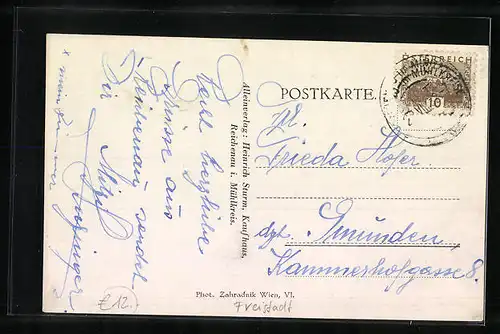 POSTKARTE.
ÖSTERREICH
10
Frieda Hofer
Gmunden
Kammerhofgasse 8.
Alleinverlag: Heinrich Sturm, Kaufhaus,
Reichenau i. Mühlkreis.
Recht herzliche
Grüsse aus
Reichenau sendet
Dir
Phot. Zahradnik Wien, VI.
Freistadt
£12.